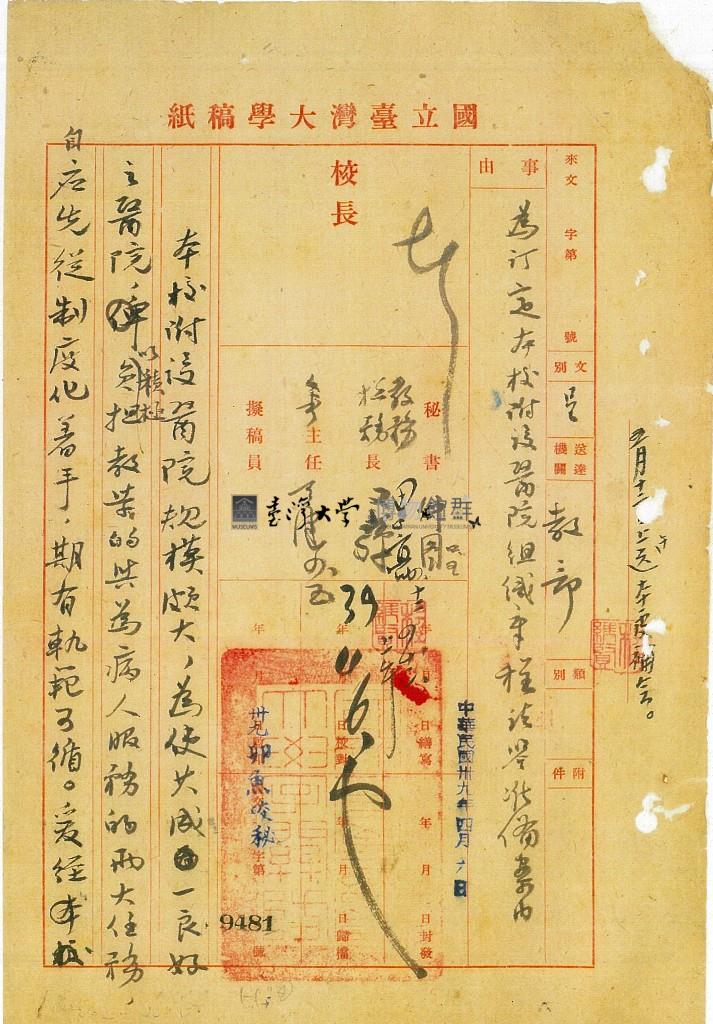 國立臺灣大學稿紙
四月十二、送本處補登。
來文 字第 號
文別 呈
送達機關 教部
類別
附件
事由
為訂定本校附設醫院組織章程請鑒准備案由
校長
秘書
教務
總務
長
主任
擬稿員
39 4 6
中華民國卅九年四月六日
年 月 日繕寫
年 月 日校對
年 月 日封發
年 月 日歸檔
卅九卯魚校秘
字第 9481 號
臺灣大學
MUSEUMS
本校附設醫院規模頗大，為使其成一良好
之醫院，以積極負担教學的與為病人服務的兩大任務，
自應先從制度化着手，期有軌範可循。爰經本校